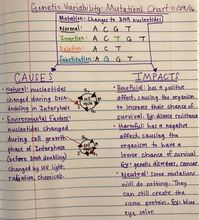 Genetic Variability: Mutations Chart 11/29/16
Mutation: Changes to DNA nucleotides
Normal: A C G T
Insertion: A C T G T
Deletion: A C T
Substitution: A G G T
CAUSES
• Natural: nucleotides
changed during DNA
doubling in Interphase
• Environmental Factors:
nucleotides changed
during cell growth
phase of Interphase
(before DNA doubling)
changed by UV light,
radiation, chemicals.
IMPACTS
• Beneficial: has a positive
affect, causing the organism
to increase their chance of
survival. Ex: disease resistance
• Harmful: has a negative
affect, causing the
organism to have a
lower chance of survival.
Ex: genetic disorders, cancer
• Neutral: some mutations
will do nothing. They
can still create the
same protein. Ex: blue
eye color.